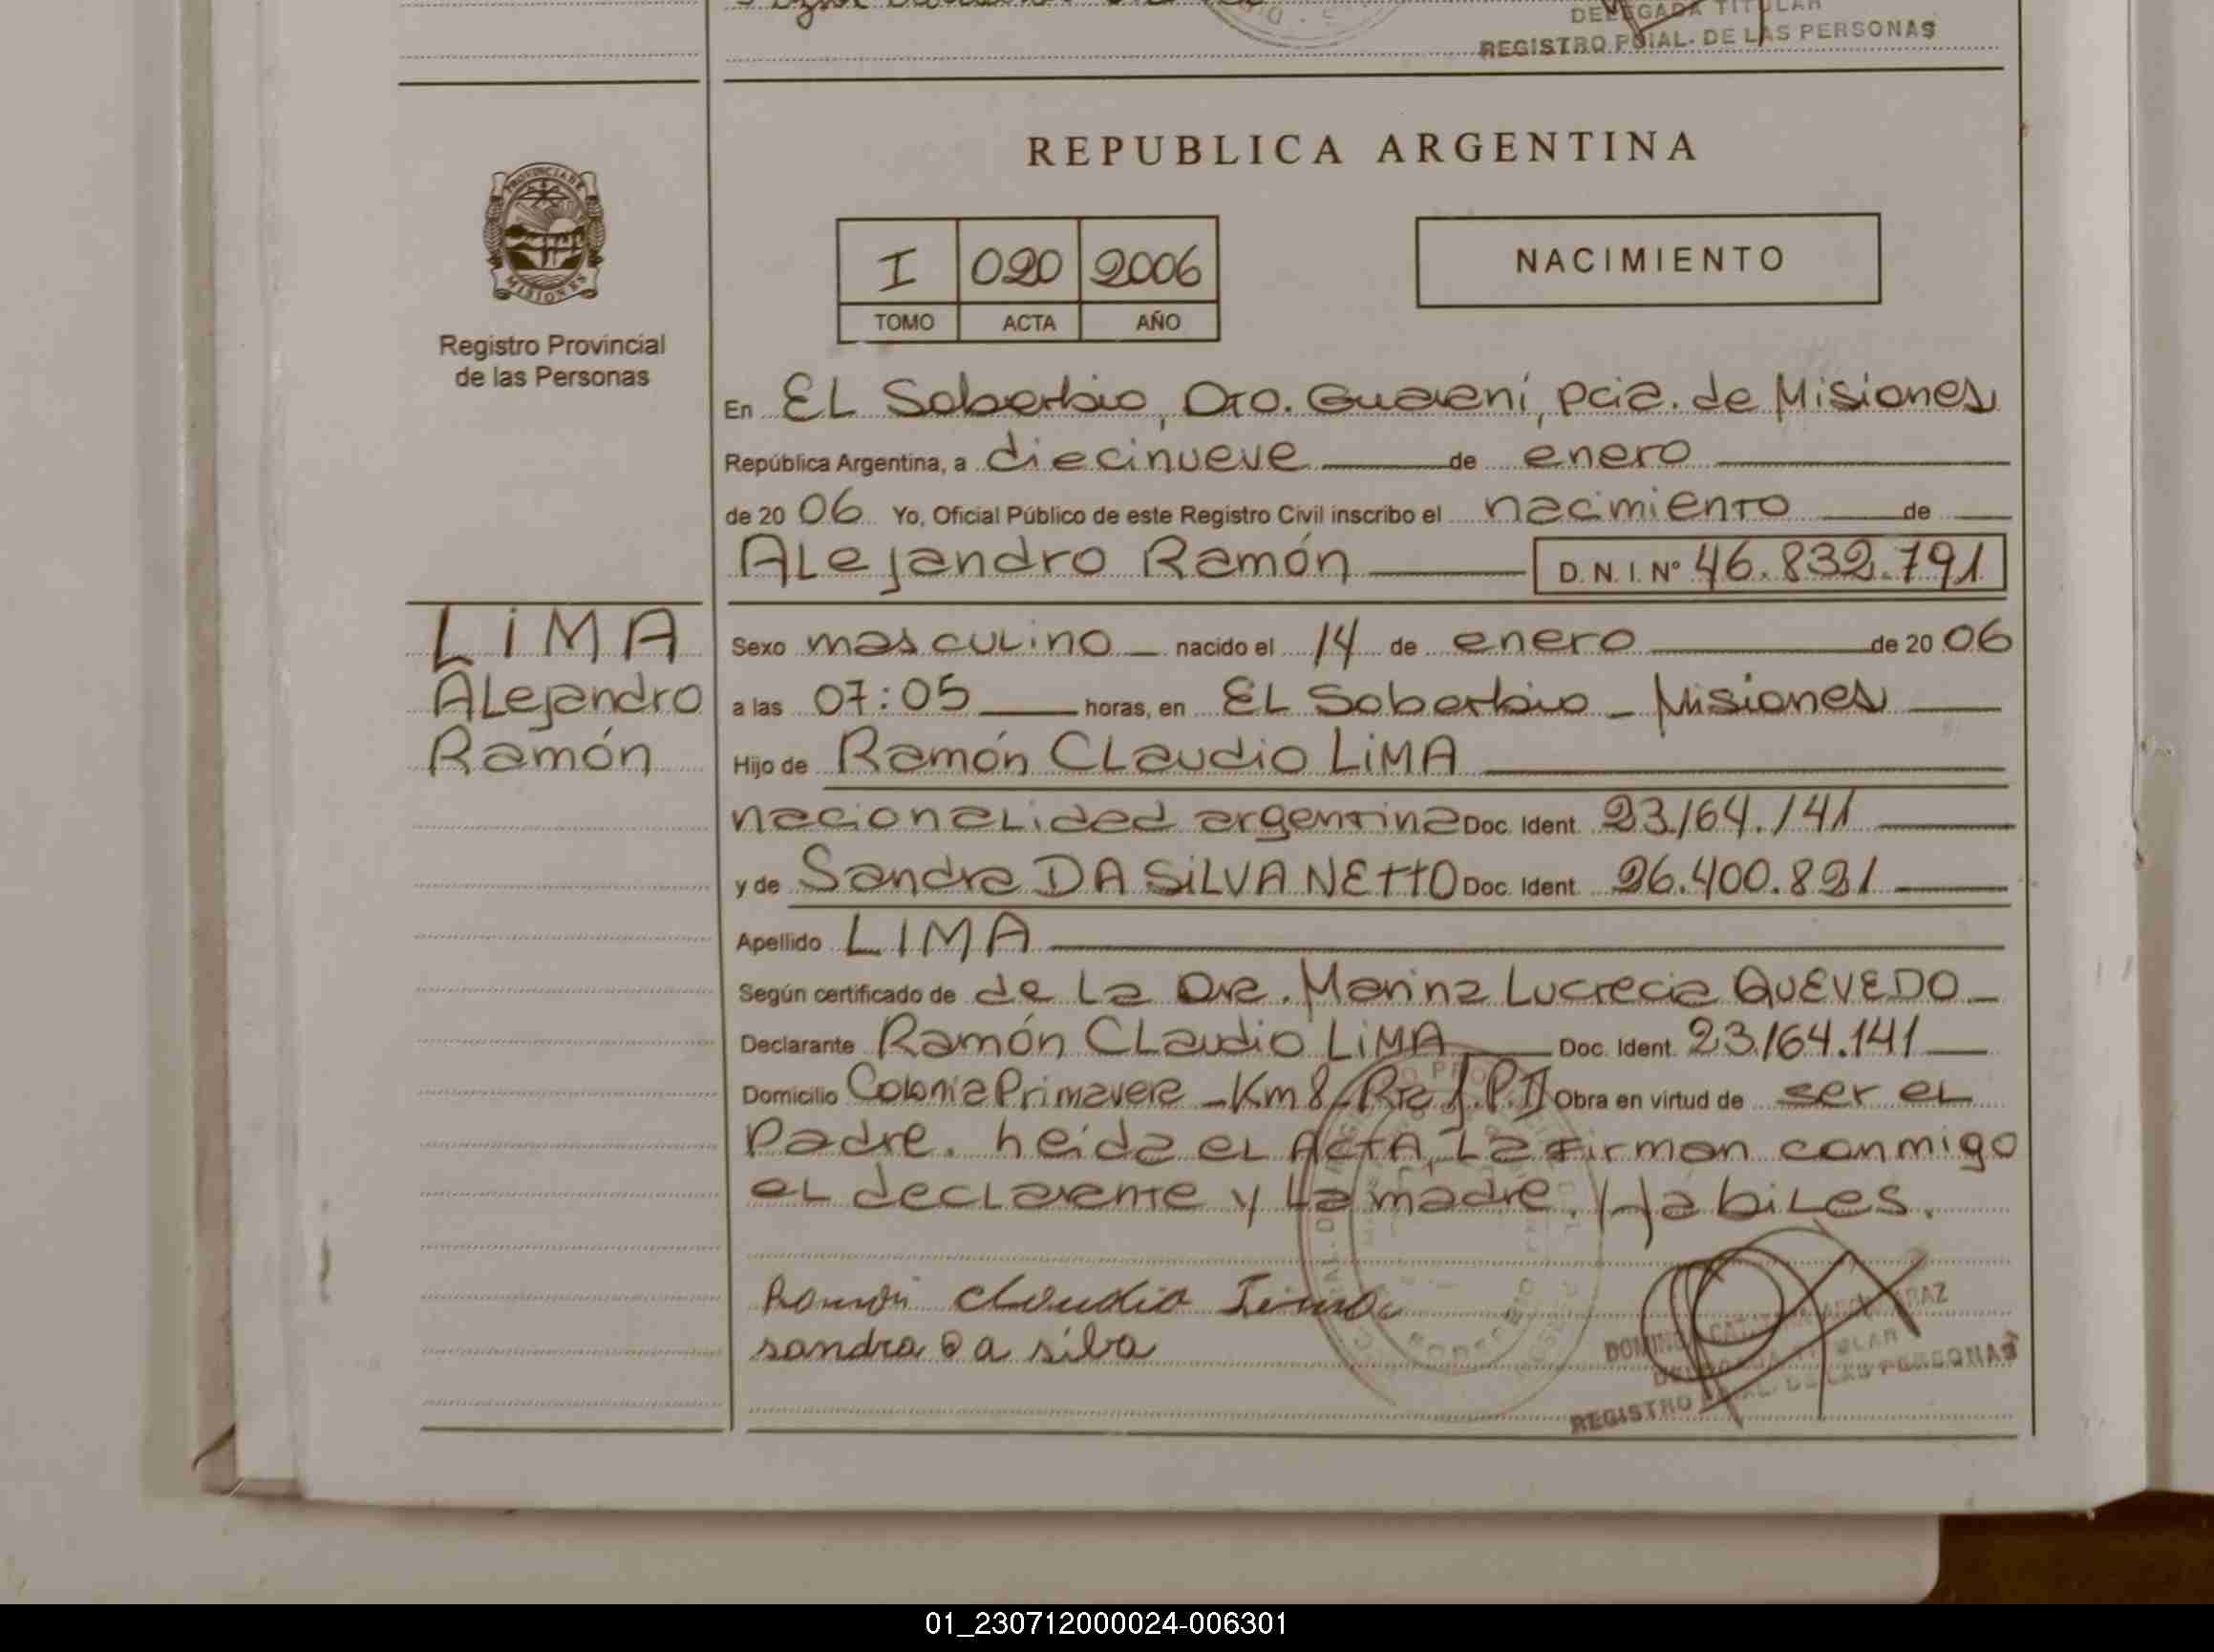 DELEGADA TITULAR
REGISTRO PCIAL. DE LAS PERSONAS
REPUBLICA ARGENTINA
PROVINCIA DE
MISIONES
Registro Provincial
de las Personas
I 020 2006
TOMO ACTA AÑO
NACIMIENTO
En EL Soberbio, Dto. Guaraní, pcia. de Misiones
República Argentina, a diecinueve de enero
de 20 06 Yo, Oficial Público de este Registro Civil inscribo el nacimiento de
ALejandro Ramón D.N.I. Nº 46.832.791
LiMA
ALejandro
Ramón
Sexo mascuLino nacido el 14 de enero de 20 06
a las 07:05 horas, en EL Soberbio - Misiones
Hijo de Ramón CLaudio LiMA
nacionaLidad argentina Doc. Ident. 23.164.141
y de Sandra DA SiLVA NEttO Doc. Ident. 26.400.821
Apellido LIMA
Según certificado de de La Dra. Marina Lucrecia QUEVEDO
Declarante Ramón CLaudio LiMA Doc. Ident. 23.164.141
Domicilio Colonia Primavera - Km 8 Obra en virtud de ser eL
Padre. Leida eL ActA, La Firman conmigo
eL decLarante y La madre. HabiLes.
Ramón Claudio Lima
sandra da silva
REGISTRO PCIAL. DE LAS PERSONAS
01_230712000024-006301